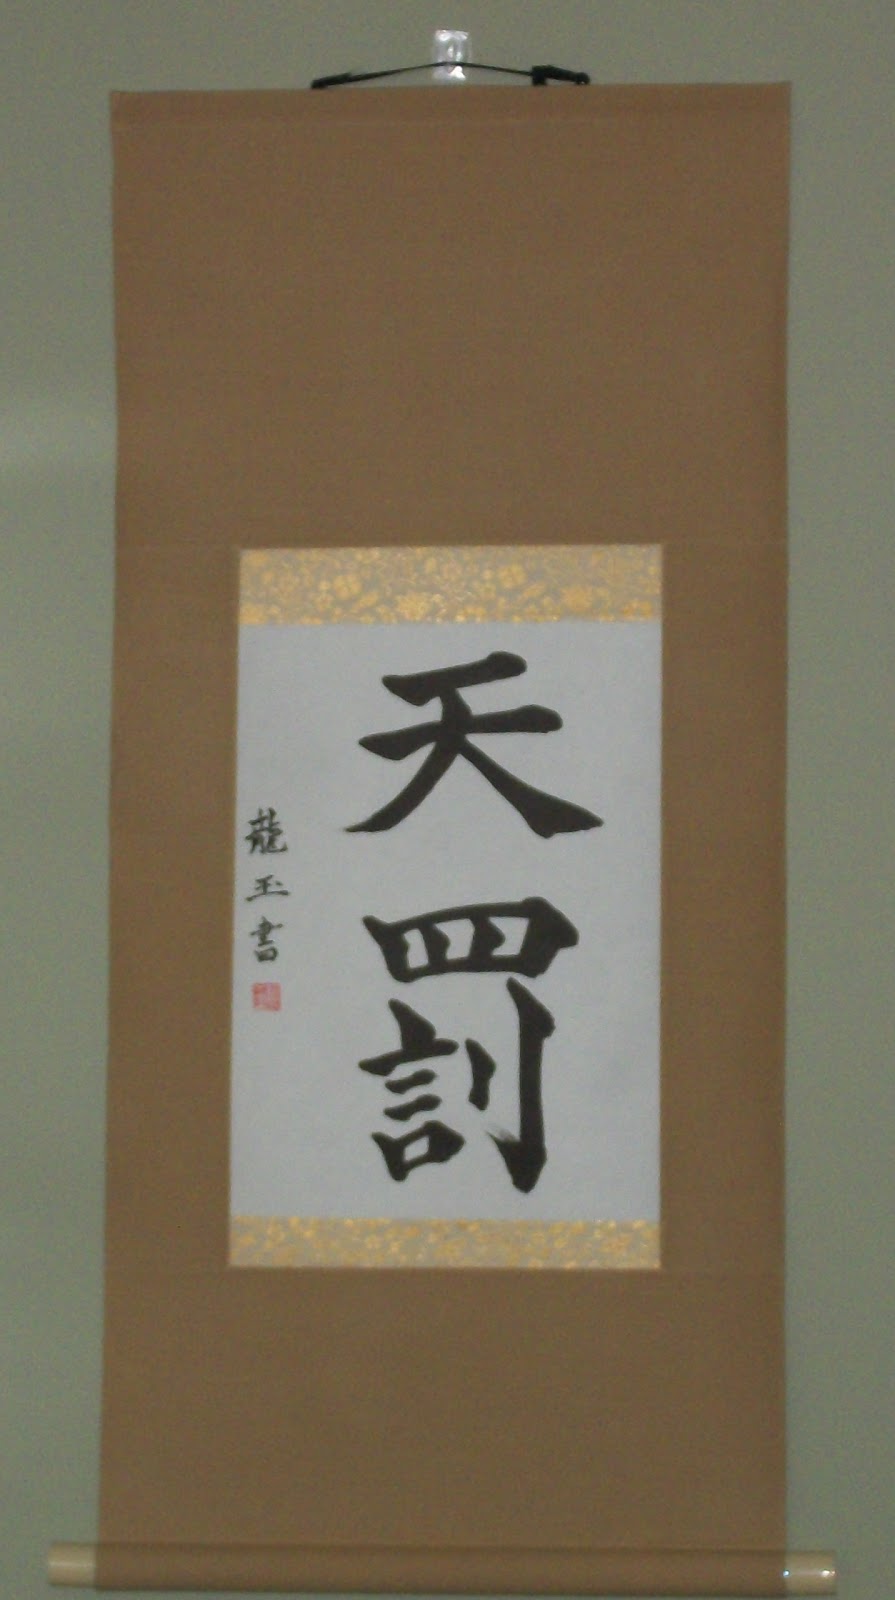 天罰
龍玉書